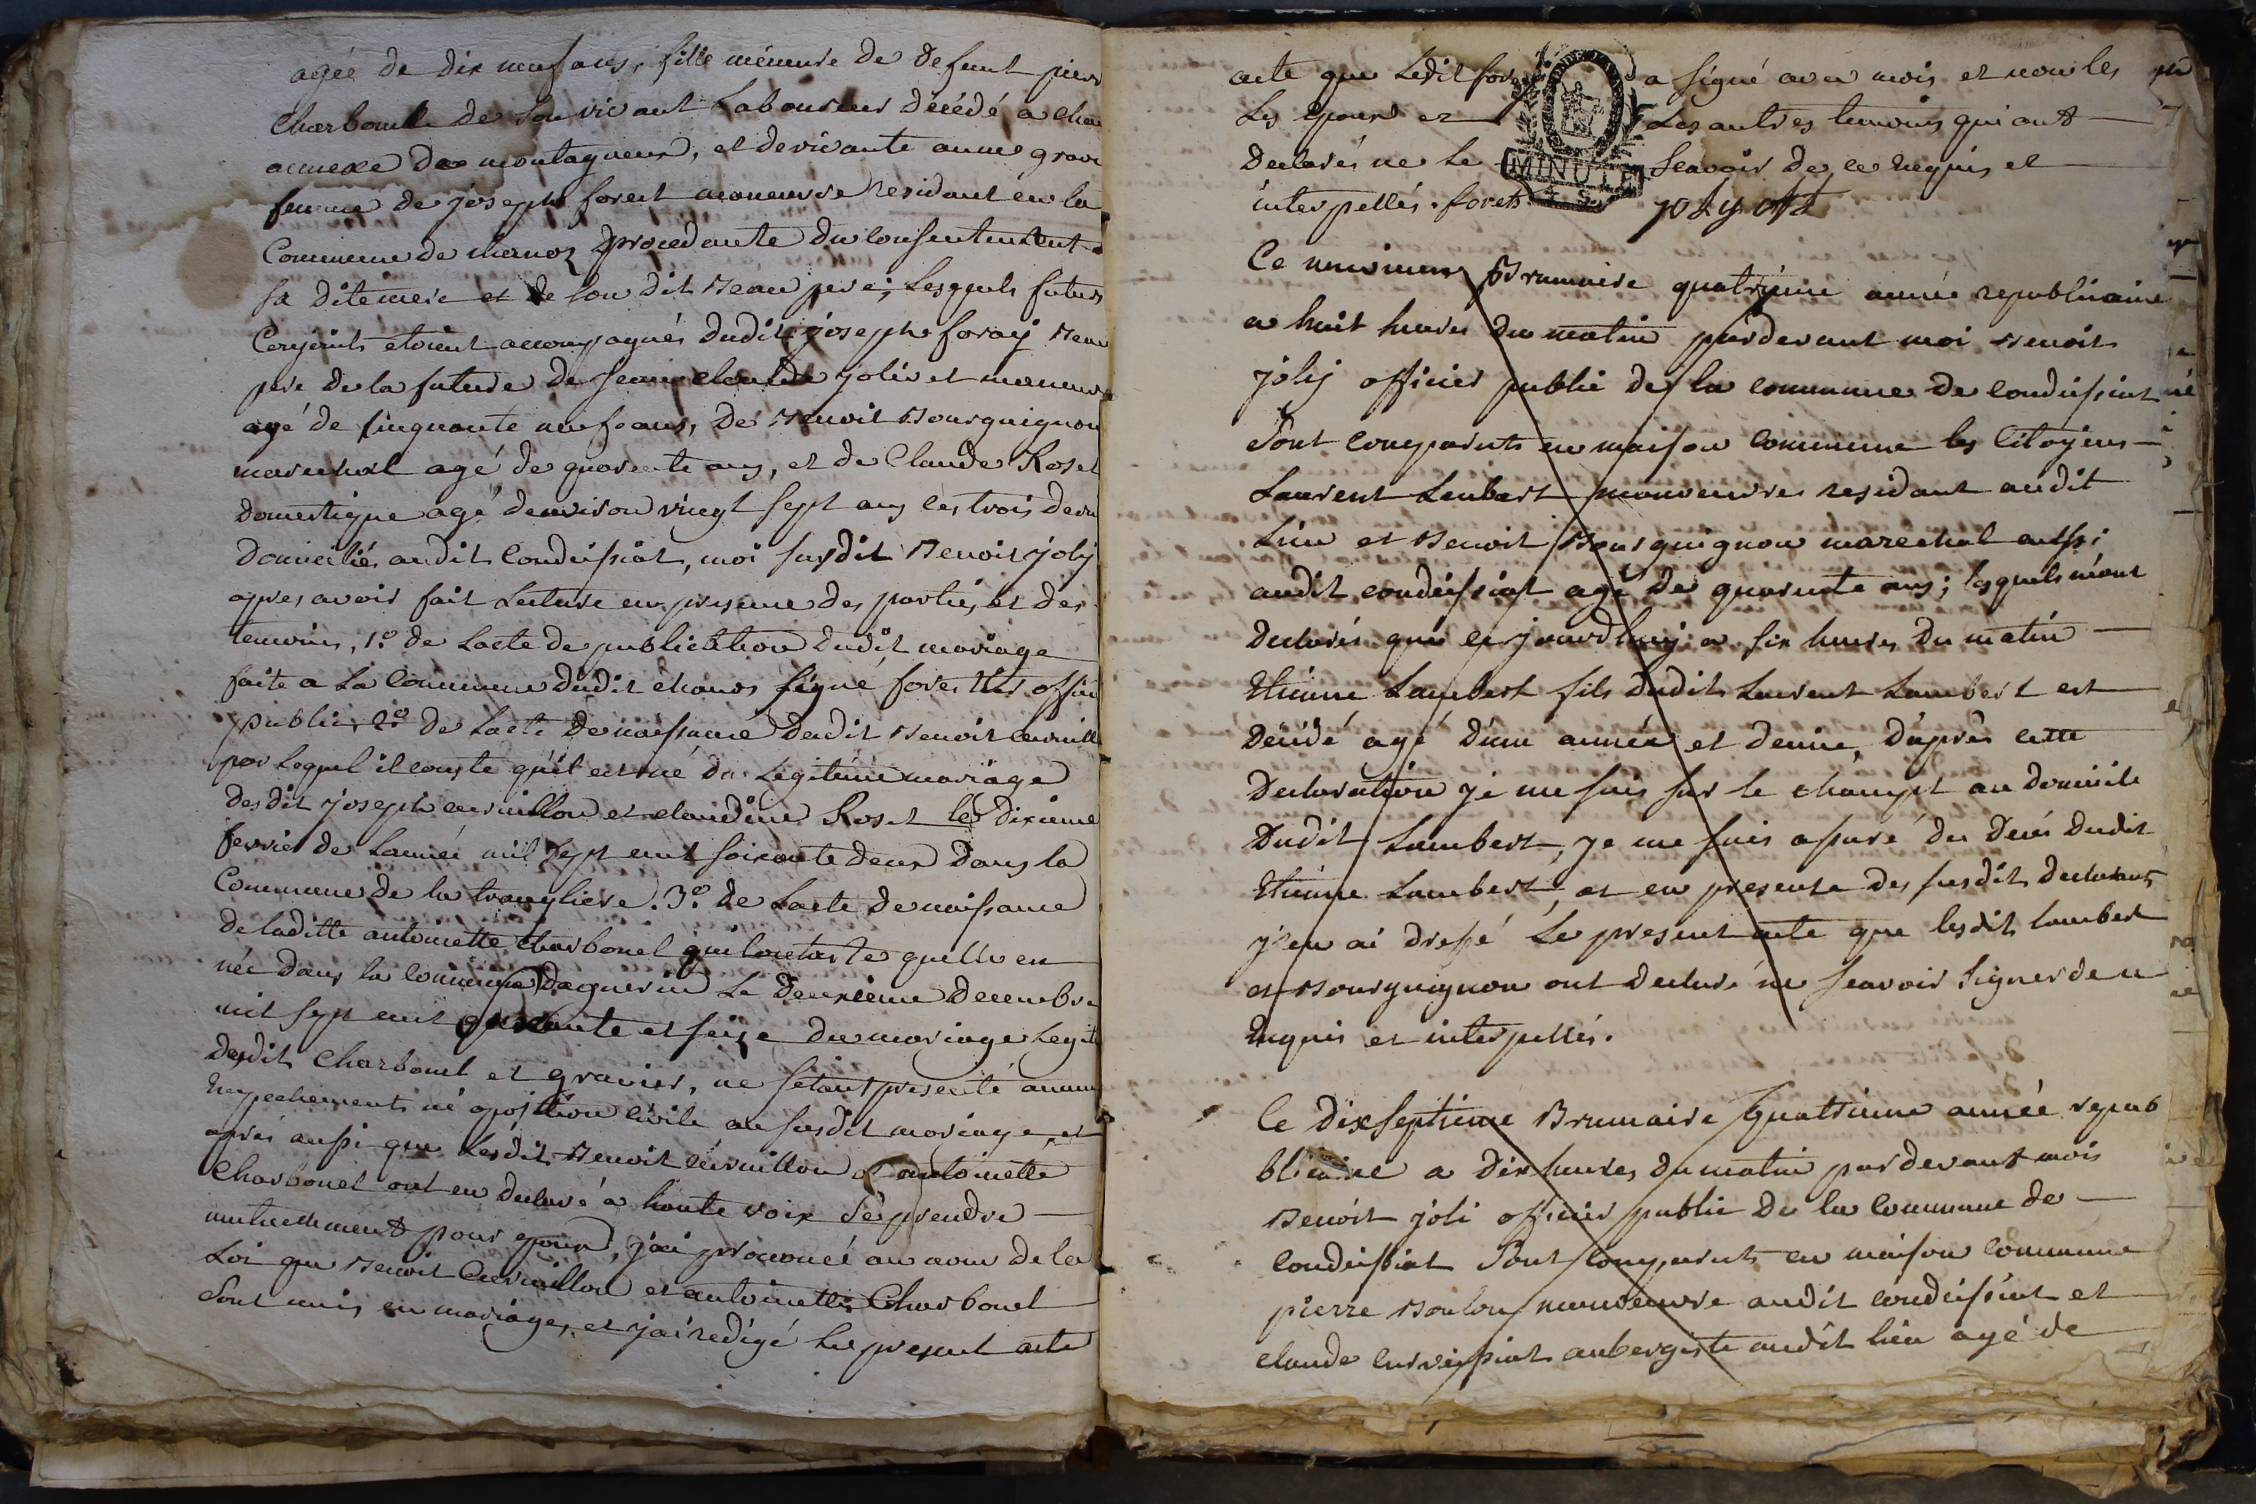 agée de dix neuf ans, fille mineure de defeunt pierr
Charbonel de son vivant Laboureur décédé a cha
annexe de montagneux, et de vivante anne gravi
femme de joseph foreit maneuvre residant en la
Commune de chanoz procedante du consentement
sa dite mere et de son dit Beau pere; Lesquels futurs
Conjoints etoient accompagnés dudit joseph foray Beau
pere de la future de jean claude jolivet maneuvre
agé de cinquante neuf ans, De Benoit Bourguignon
marechal agé de quarente ans, et de Claude Roset
domestique agé denviron vingt sept ans les trois derni
Domiciliés audit Condeissiat, moi susdit Benoit jolij
apres avoir fait Lecture en presence des parties et des
temoins, 1.º de Lacte de publication dudit mariage
faite a La Commune dudit chanos signé forest offici
public, 2.º de Lacte de naissance dudit Benoit Cuvrill
par Lequel il conste quil est né du Legitime mariage
desdit joseph et claudine Roset le dixieme
fevrier de Lannée mil sept cent soixante deux dans la
Commune de la trangliere. 3.º de Lacte de naissance
de laditte antoinette Charbonel qui constaste quelle en
née dans la commune Daguerin Le deuxieme Decembre
mil sept cent et seize du mariage Legit
desdit Charbonel et gravier, ne setant presenté aucun
Enpechements ni oposition civile au susdit mariage, et
aprés aussi que Lesdit Benoit et antoinette
Charbonel ont eu declaré a haute voix se prendre
mutuellement pour epoux, j'ai prononcé au nom de la
Loi que Benoit et antoinette Charbonel
Sont unis en mariage, et j'ai redigé Le present acte
acte que Ledit fore a signé avec mois et non les
Les epoux et Les autres temoins qui ont
Declarés ne Le Scavoir de ce Requis et
interpellés. forets jolij off.
MINUTE
Ce Brumaire quatrieme année republicaine
a huit heures du matin pardevant moi Benoit
jolij officier public de la commune de condeissiat
Sont comparuts en maison commune les Citoyens
Laurent Lambert manoeuvre residant audit
Lieu et Benoit Bourguignon marechal aussi
audit condeissiat agé de quarente ans; lesquels m'ont
Declarés que ce jourd'huij a six heures du matin
Etienne Lambert fils dudit Laurent Lambert est
Decédé agé d'une année et demie, d'aprês cette
Declaration je me suis sur le champt au domicile
Dudit Lambert, je me suis assuré du Decés dudit
Etienne Lambert, et en presente des susdits declarants
j'en ai dressé Le present acte que lesdits lambert
et Bourguignon ont declaré ne scavoir signer de ce
Requis et interpellés.
Ce dixseptieme Brumaire quatrieme année repub
blicaine a dix heures du matin pardevant mois
Benoit joli officier public de la Commune de
condeissiat Sont comparuts en maison commune
pierre Boulon manoeuvre audit condeissiat et
claude aubergiste audit lieu agé de